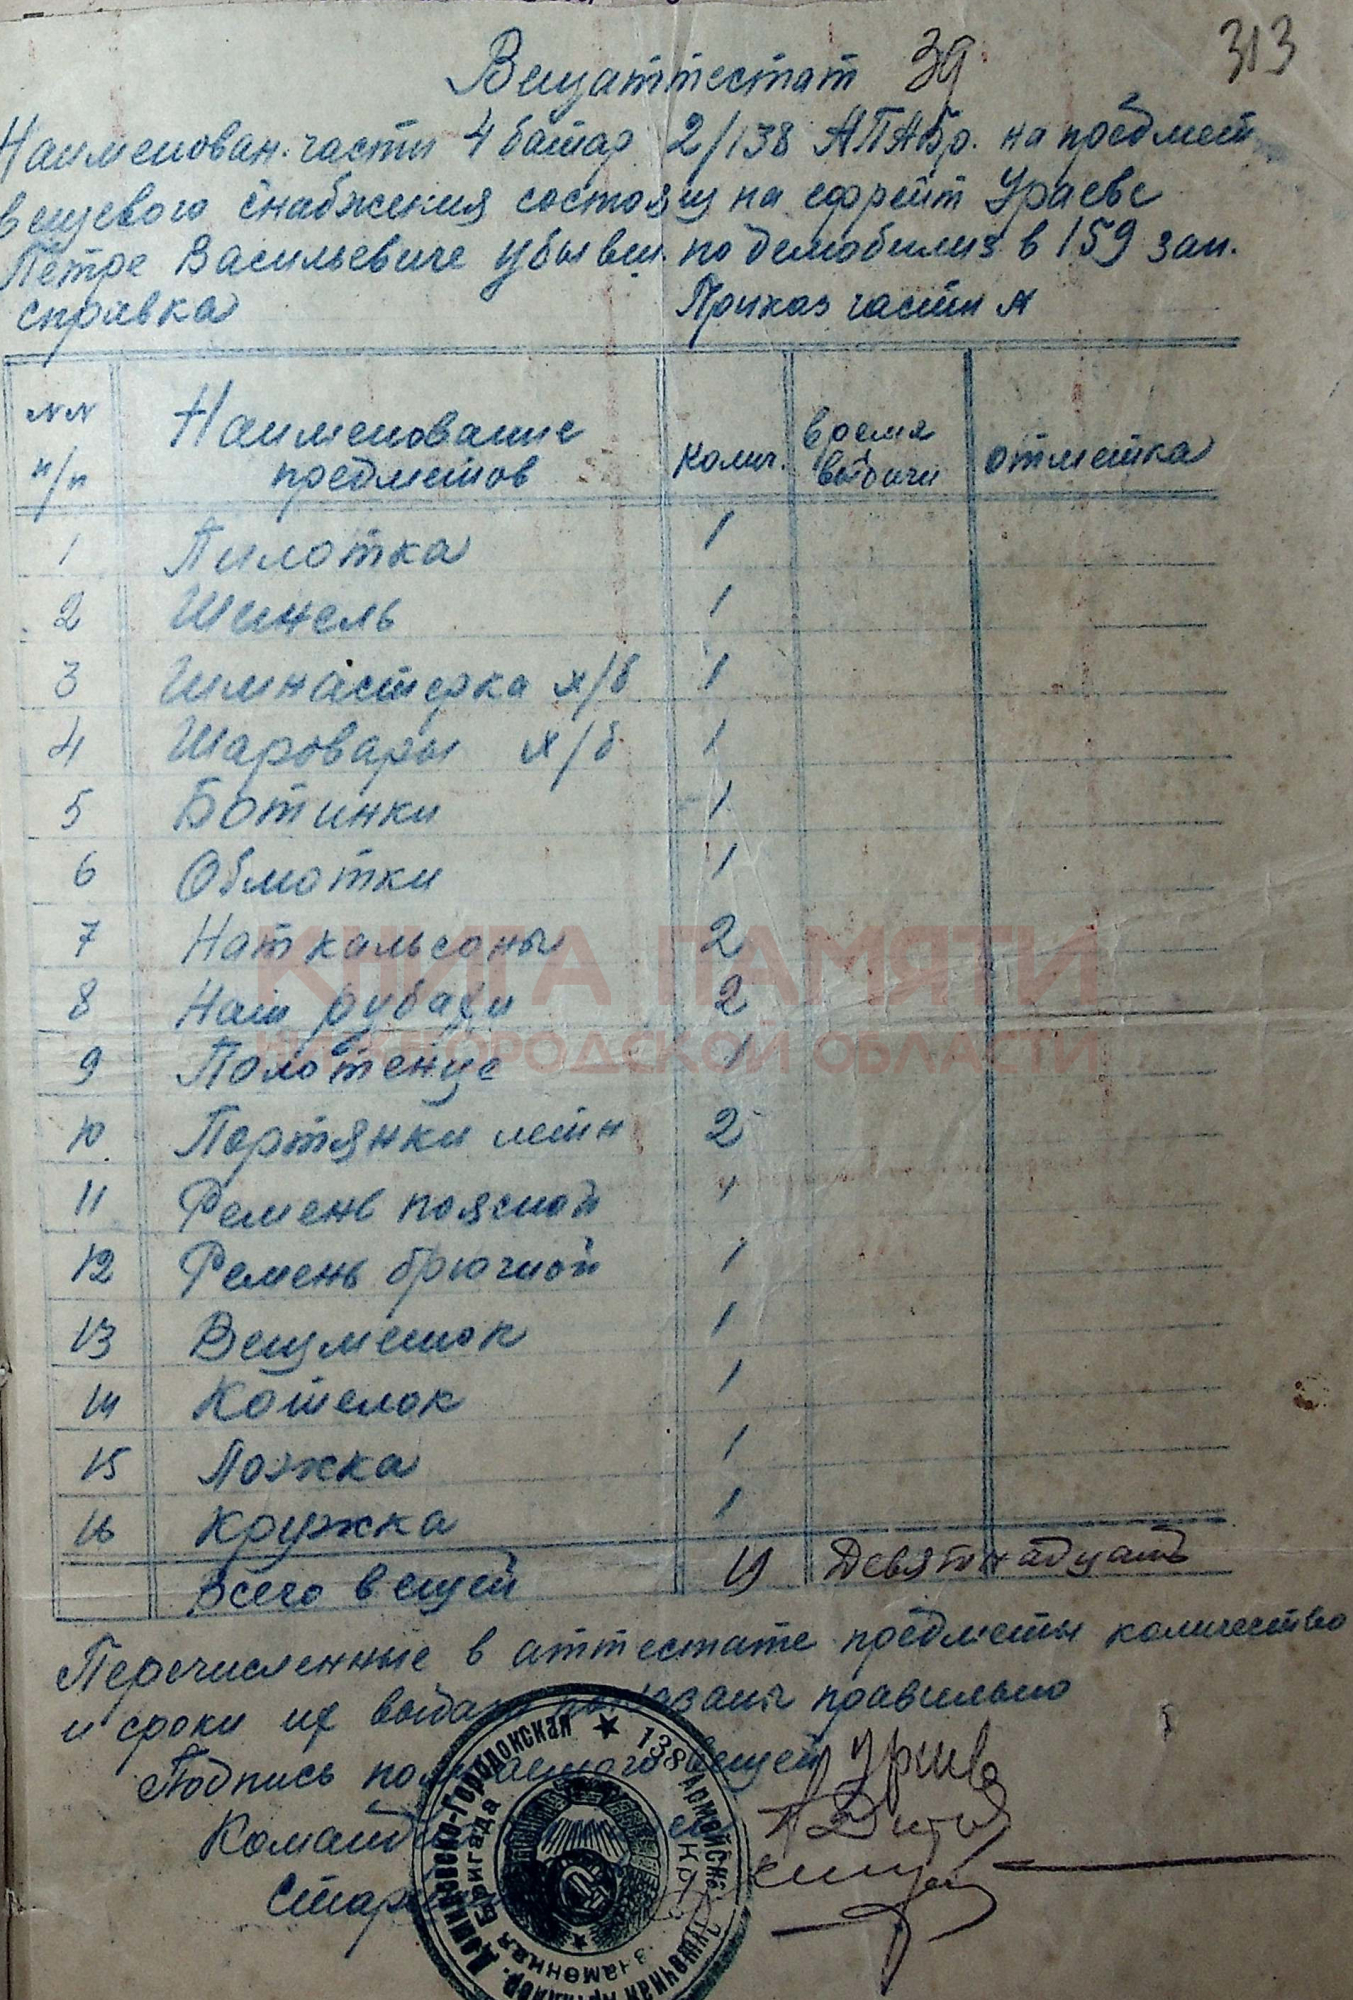 313
Вещаттестат 39
Наименован. части 4 батар 2/138 АПАБр. на предмет
вещевого снабжения состоящ на ефрейт Ураеве
Петре Васильевиче убывш. по демобилиз в 159 зап.
справка Приказ части №
№№ п/п Наименование предметов Колич. время выдачи отметка
1 Пилотка 1
2 Шинель 1
3 Гимнастерка х/б 1
4 Шаровары х/б 1
5 Ботинки 1
6 Обмотки 1
7 Нат кальсоны 2
8 Нат рубахи 2
9 Полотенце 1
10 Портянки летн 2
11 Ремень поясной 1
12 Ремень брючной 1
13 Вещмешок 1
14 Котелок 1
15 Ложка 1
16 Кружка 1
Всего вещей 19 Девятнадцать
Перечисленные в аттестате предметы количество
и сроки их выдачи указаны правильно
Подпись получаемого вещей Ураев
Команд
Стар
138 Армейская Пушечная Артиллер. Дашиховско-Городокская
Краснознаменная Бригада
КНИГА ПАМЯТИ
НИЖЕГОРОДСКОЙ ОБЛАСТИ